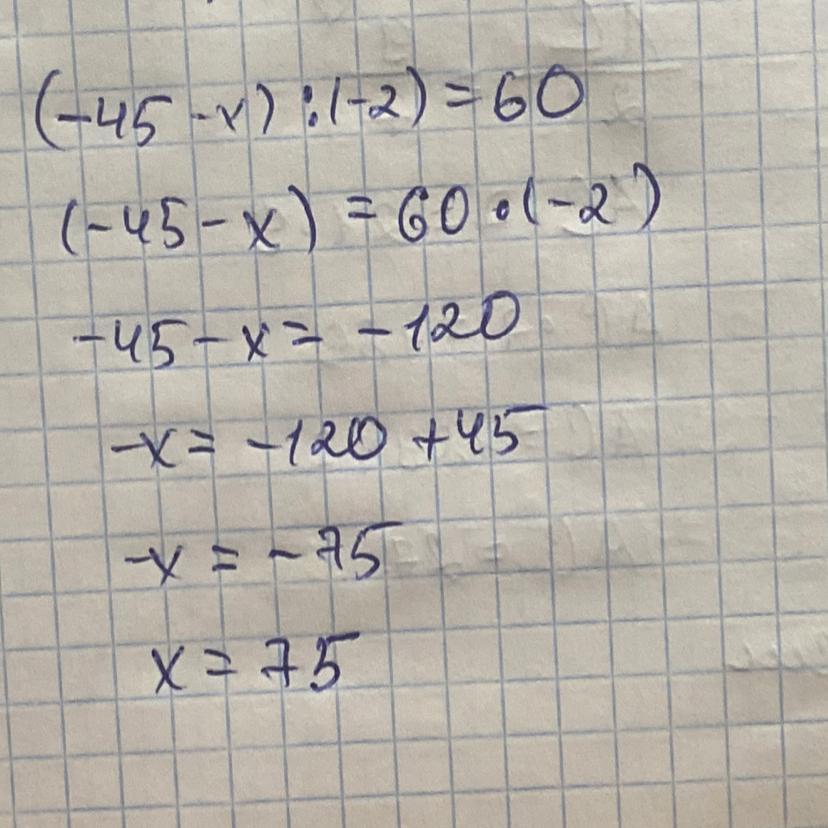 (-45 - x) : (-2) = 60
(-45 - x) = 60 • (-2)
-45 - x = -120
-x = -120 + 45
-x = -75
x = 75